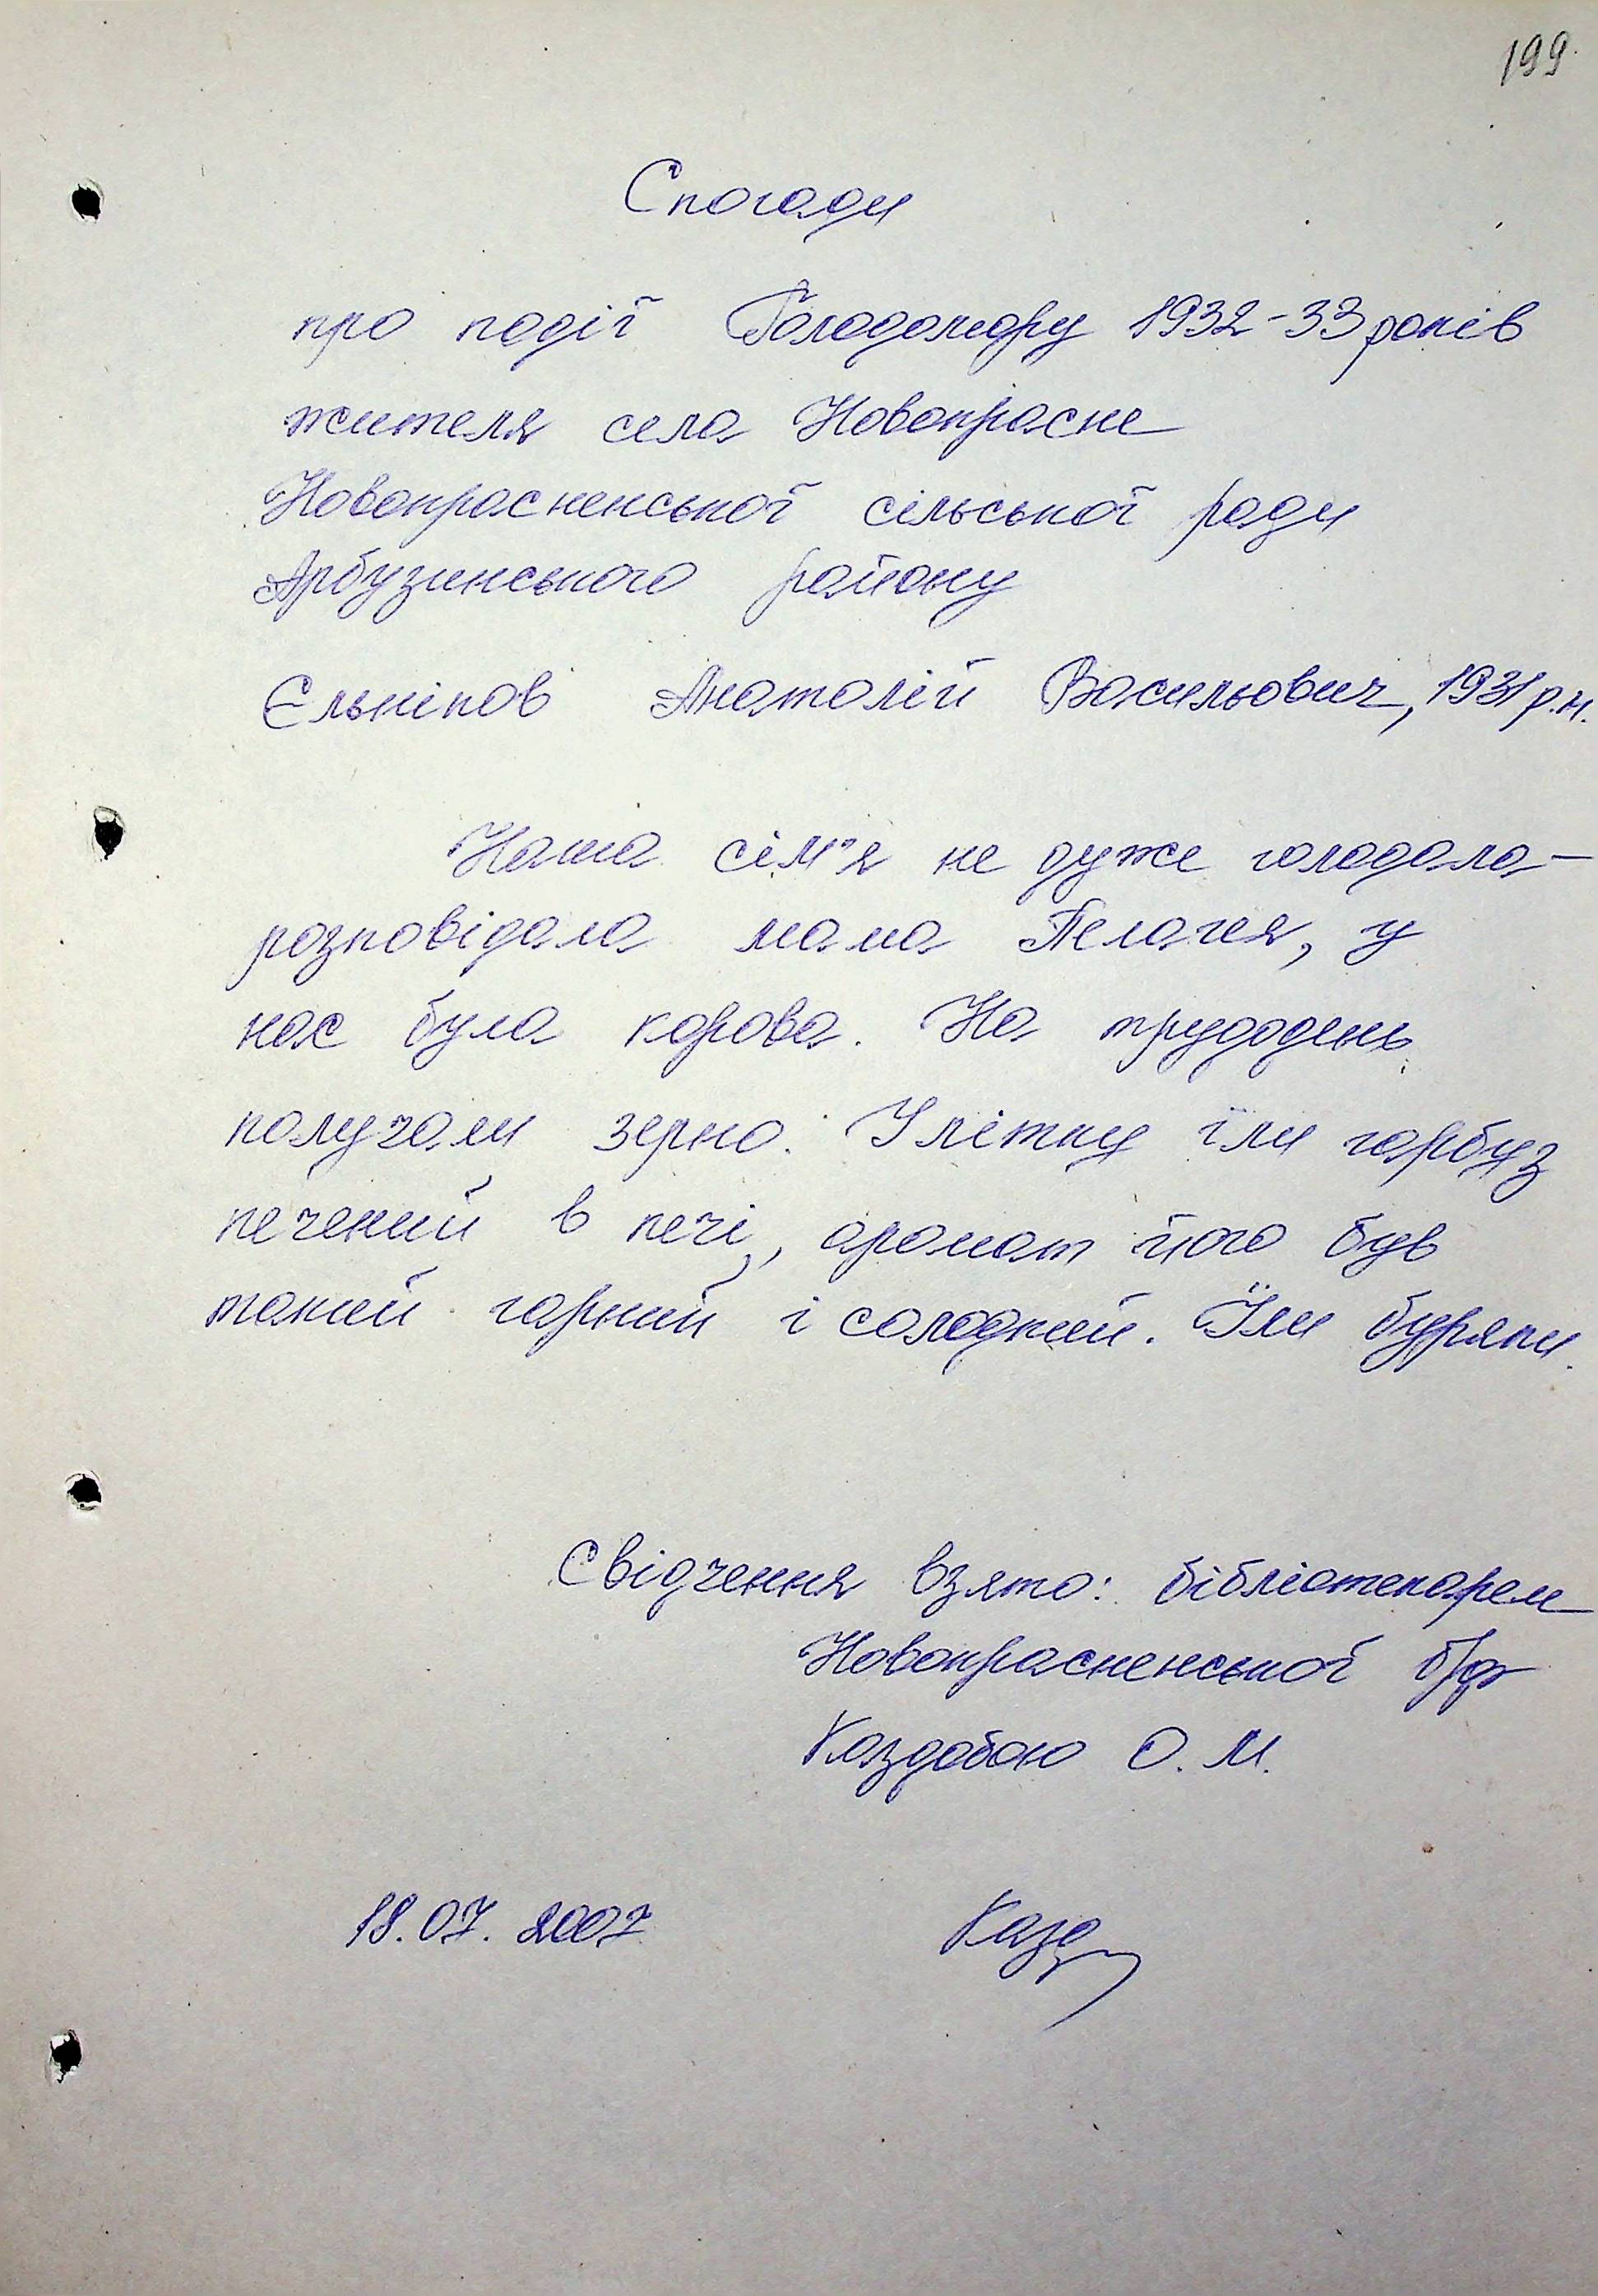 199.
Спогади
про події Голодомору 1932-33 років
жителя села Новокрасне
Новокрасненської сільської ради
Арбузинського району
Єльніков Анатолій Васильович, 1931 р.н.
Наша сім'я не дуже голодала –
розповідала мама Пелагея, у
нас була корова. На трудодень
получали зерно. Улітку їли гарбуз
печений в печі, аромат його був
такий гарний і солодкий. Їли буряки.
Свідчення взято: бібліотекарем
Новокрасненської б/ф
Каздобою О. М.
18.07.2007 Казд